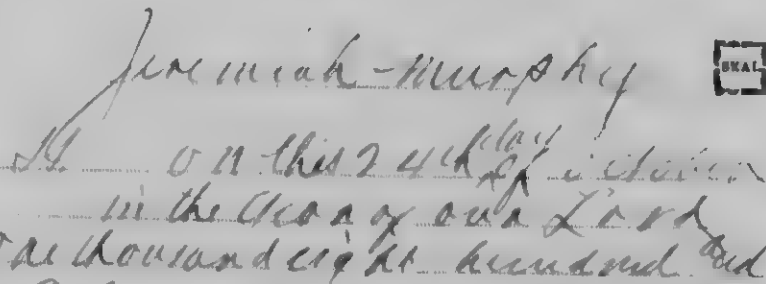 Jeremiah - Murphy
SEAL
on this 24th day of
in the year of our Lord
one thousand eight hundred and